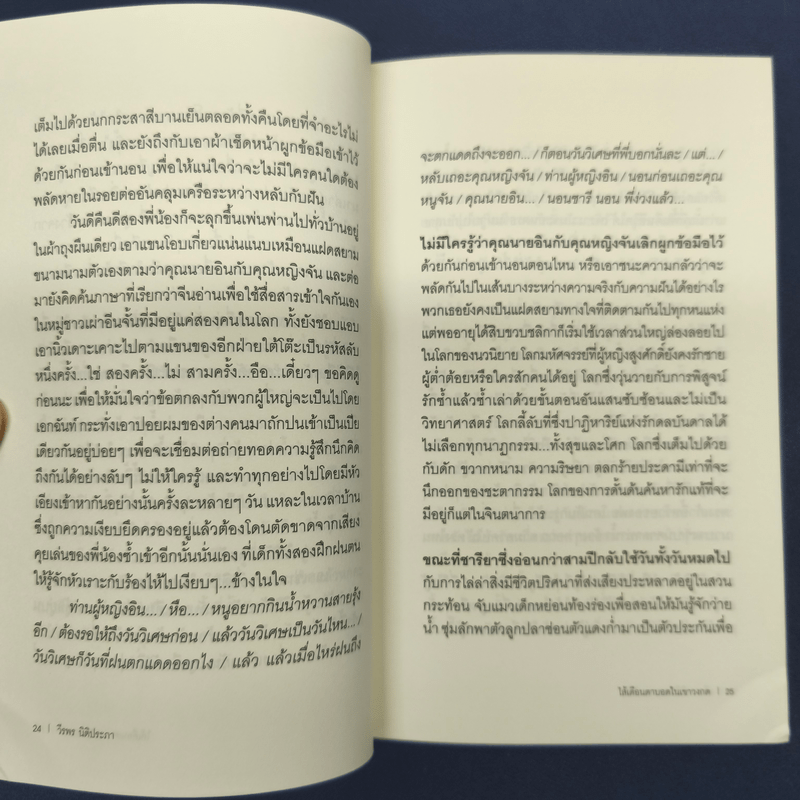 เต็มไปด้วยนกกระสาสีบานเย็นตลอดทั้งคืนโดยที่จำอะไรไม่
ได้เลยเมื่อตื่น และยังถึงกับเอาผ้าเช็ดหน้าผูกข้อมือเข้าไว้
ด้วยกันก่อนเข้านอน เพื่อให้แน่ใจว่าจะไม่มีใครคนใดต้อง
พลัดหายในรอยต่ออันคลุมเครือระหว่างหลับกับฝัน
วันดีคืนดีสองพี่น้องก็จะลุกขึ้นเพ่นพ่านไปทั่วบ้านอยู่
ในผ้าถุงผืนเดียว เอาแขนโอบเกี่ยวแน่นแนบเหมือนแฝดสยาม
ขนานนามตัวเองตามว่าคุณนายอินกับคุณหญิงจัน และต่อ
มายังคิดค้นภาษาที่เรียกว่าจีนอ่านเพื่อใช้สื่อสารเข้าใจกันเอง
ในหมู่ชาวเผ่าอินจั้นที่มีอยู่แค่สองคนในโลก ทั้งยังชอบแอบ
เอานิ้วเดาะเคาะไปตามแขนของอีกฝ่ายใต้โต๊ะเป็นรหัสลับ
หนึ่งครั้ง...ใช่ สองครั้ง...ไม่ สามครั้ง...อือ...เดี๋ยวๆ ขอคิดดู
ก่อนนะ เพื่อให้มั่นใจว่าข้อตกลงกับพวกผู้ใหญ่จะเป็นไปโดย
เอกฉันท์ กระทั่งเอาปอยผมของต่างคนมาถักปนเข้าเป็นเปีย
เดียวกันอยู่บ่อยๆ เพื่อจะเชื่อมต่อถ่ายทอดความรู้สึกนึกคิด
ถึงกันได้อย่างลับๆ ไม่ให้ใครรู้ และทำทุกอย่างไปโดยมีหัว
เอียงเข้าหากันอย่างนั้นครั้งละหลายๆ วัน แหละในเวลาบ้าน
ซึ่งถูกความเงียบยึดครองอยู่แล้วต้องโดนตัดขาดจากเสียง
คุยเล่นของพี่น้องซ้ำเข้าอีกนั้นนั่นเอง ที่เด็กทั้งสองฝึกฝนตน
ให้รู้จักหัวเราะกับร้องไห้ไปเงียบๆ...ข้างในใจ
ท่านผู้หญิงอิน... / หือ... / หนูอยากกินน้ำหวานสายรุ้ง
อีก / ต้องรอให้ถึงวันวิเศษก่อน / แล้ววันวิเศษเป็นวันไหน... /
วันวิเศษก็วันที่ฝนตกแดดออกไง / แล้ว แล้วเมื่อไหร่ฝนถึง
24 | วีรพร นิติประภา
จะตกแดดถึงจะออก... / ก็ตอนวันวิเศษที่พี่บอกนั่นละ / แต่... /
หลับเถอะคุณหญิงจัน / ท่านผู้หญิงอิน / นอนก่อนเถอะคุณ
หนูจัน / คุณนายอิน... / นอนชารี นอน พี่ง่วงแล้ว...
ไม่มีใครรู้ว่าคุณนายอินกับคุณหญิงจันเลิกผูกข้อมือไว้
ด้วยกันก่อนเข้านอนตอนไหน หรือเอาชนะความกลัวว่าจะ
พลัดกันไปในเส้นบางระหว่างความจริงกับความฝันได้อย่างไร
พวกเธอยังคงเป็นแฝดสยามทางใจที่ติดตามกันไปทุกหนแห่ง
แต่พออายุได้สิบขวบชลิกาก็เริ่มใช้เวลาส่วนใหญ่ล่องลอยไป
ในโลกของนวนิยาย โลกมหัศจรรย์ที่ผู้หญิงสูงศักดิ์ยังคงรักชาย
ผู้ต่ำต้อยหรือใครสักคนได้อยู่ โลกซึ่งวุ่นวายกับการพิสูจน์
รักซ้ำแล้วซ้ำเล่าด้วยขั้นตอนอันแสนซับซ้อนและไม่เป็น
วิทยาศาสตร์ โลกลี้ลับที่ซึ่งปาฏิหาริย์แห่งรักดลบันดาลได้
ไม่เลือกทุกนาฏกรรม...ทั้งสุขและโศก โลกซึ่งเต็มไปด้วย
กับดัก ขวากหนาม ความริษยา ตลกร้ายประดามีเท่าที่จะ
นึกออกของชะตากรรม โลกของการดั้นด้นค้นหารักแท้ที่จะ
มีอยู่ก็แต่ในจินตนาการ
ขณะที่ชารียาซึ่งอ่อนกว่าสามปีกลับใช้วันทั้งวันหมดไป
กับการไล่ล่าสิ่งมีชีวิตปริศนาที่ส่งเสียงประหลาดอยู่ในสวน
กระท้อน จับแมวเด็กหย่อนท้องร่องเพื่อสอนให้มันรู้จักว่าย
น้ำ ซุ่มลักพาตัวลูกปลาช่อนตัวแดงก่ำมาเป็นตัวประกันเพื่อ
ไส้เดือนตาบอดในเขาวงกต | 25